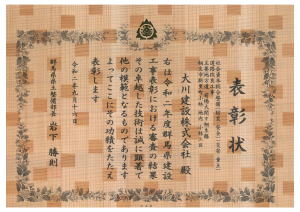 表彰状
大川建設株式会社 殿
右は令和二年度群馬県建設
工事表彰における審査の結果
その卓越した技術は誠に顕著で
他の模範となるものであります
よってここにその功績をたたえ
表彰します
令和二年九月十六日
群馬県県土整備部長
岩下 勝則